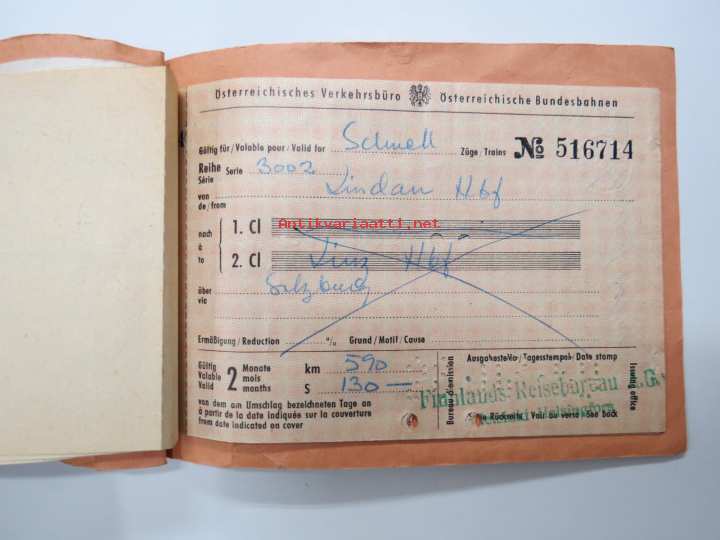 Österreichisches Verkehrsbüro Österreichische Bundesbahnen
Gültig für/Valable pour/Valid for Schnell Züge/Trains № 516714
Reihe
Série Serie 3002
von
de/from Lindau Hbf
nach 1. Cl
Antikvariaatti.net
à
to 2. Cl Linz Hbf
über
via Salzburg
Ermäßigung/Reduction % Grund/Motif/Cause
Gültig
Valable
Valid 2 Monate
mois
months km 590
S 130 —
von dem am Umschlag bezeichneten Tage an
à partir de la date indiquée sur la couverture
from date indicated on cover
Bureau d'émission
Ausgabestelle/Tagesstempel/Date stamp
Finnlands Reisebureau A.G.
Helsingfors
Siehe Rückseite/Voir au verso/See back
Issuing office